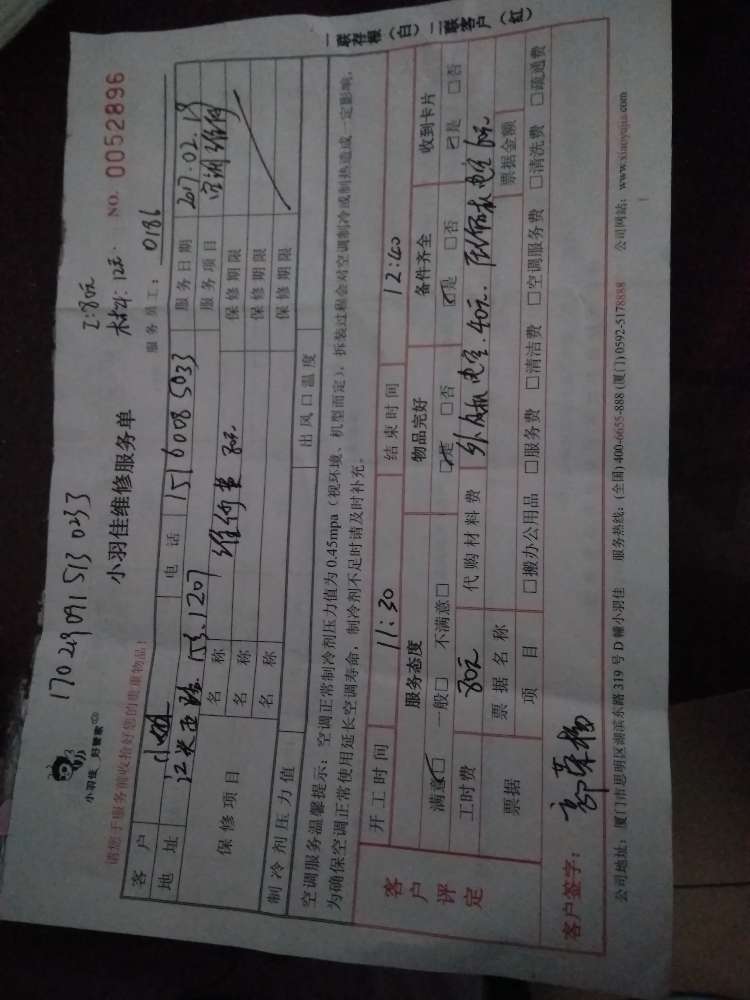 17024909151 3 0233
小羽佳 好管家
工:80元
材料:120.
NO. 0052896
小羽佳维修服务单
请您于服务前收拾好您的贵重物品!
服务员工: 0186
客户 小姐 电话 15160085033 服务日期 2017.02.19
地址 153.1207 服务项目 空调维修
保修项目 名称 维修费 80元 保修期限
名称 保修期限
名称 保修期限
制冷剂压力值 出风口温度
空调服务温馨提示: 空调正常制冷剂压力值为 0.45mpa(视环境、机型而定), 拆装过程会对空调制冷或制热造成一定影响,
为确保空调正常使用延长空调寿命, 制冷剂不足时请及时补充。
客户评定
开工时间 11:30 结束时间 12:40
服务态度 物品完好 备件齐全 收到卡片
满意☑ 一般□ 不满意□ ☑是 □否 ☑是 □否 ☑是 □否
工时费 80元 代购材料费 外风机电容.40元. 压缩机电容80元
票据 票据名称 票据金额
项目 □搬办公用品 □服务费 □清洁费 □空调服务费 □清洗费 □疏通费
客户签字:
公司地址: 厦门市思明区湖滨东路 319 号 D 幢小羽佳 服务热线: (全国) 400-6655-888 (厦门) 0592-5178888 公司网站: www.xiaoyujia.com
一联存根(白) 二联客户(红)